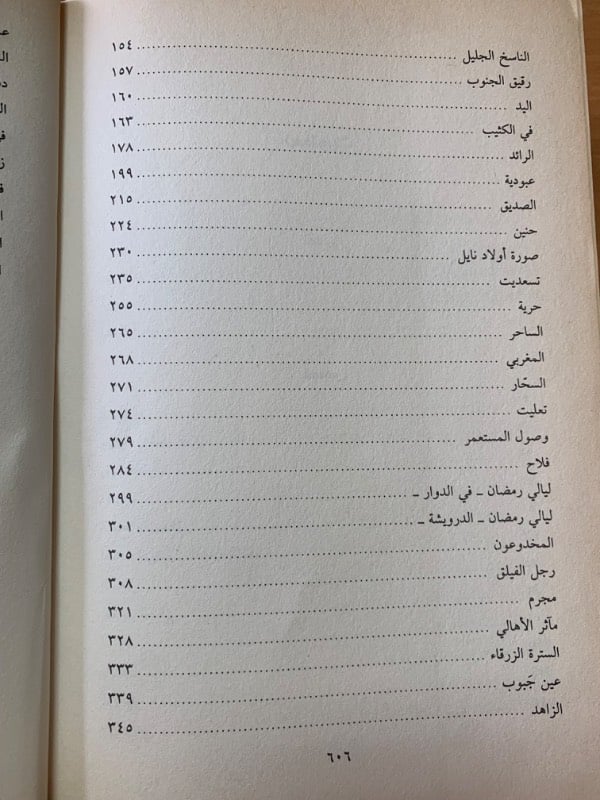 الناسخ الجليل ........ ١٥٤
رقيق الجنوب ........ ١٥٧
اليد ........ ١٦٠
في الكثيب ........ ١٦٣
الرائد ........ ١٧٨
عبودية ........ ١٩٩
الصديق ........ ٢١٥
حنين ........ ٢٢٤
صورة أولاد نايل ........ ٢٣٠
تسعديت ........ ٢٣٥
حرية ........ ٢٥٥
الساحر ........ ٢٦٥
المغربي ........ ٢٦٨
السحّار ........ ٢٧١
تعليت ........ ٢٧٤
وصول المستعمر ........ ٢٧٩
فلاح ........ ٢٨٤
ليالي رمضان ـ في الدوار ـ ........ ٢٩٩
ليالي رمضان ـ الدرويشة ـ ........ ٣٠١
المخدوعون ........ ٣٠٥
رجل الفيلق ........ ٣٠٨
مجرم ........ ٣٢١
مآثر الأهالي ........ ٣٢٨
السترة الزرقاء ........ ٣٣٣
عين جَبوب ........ ٣٣٩
الزاهد ........ ٣٤٥
٦٠٦